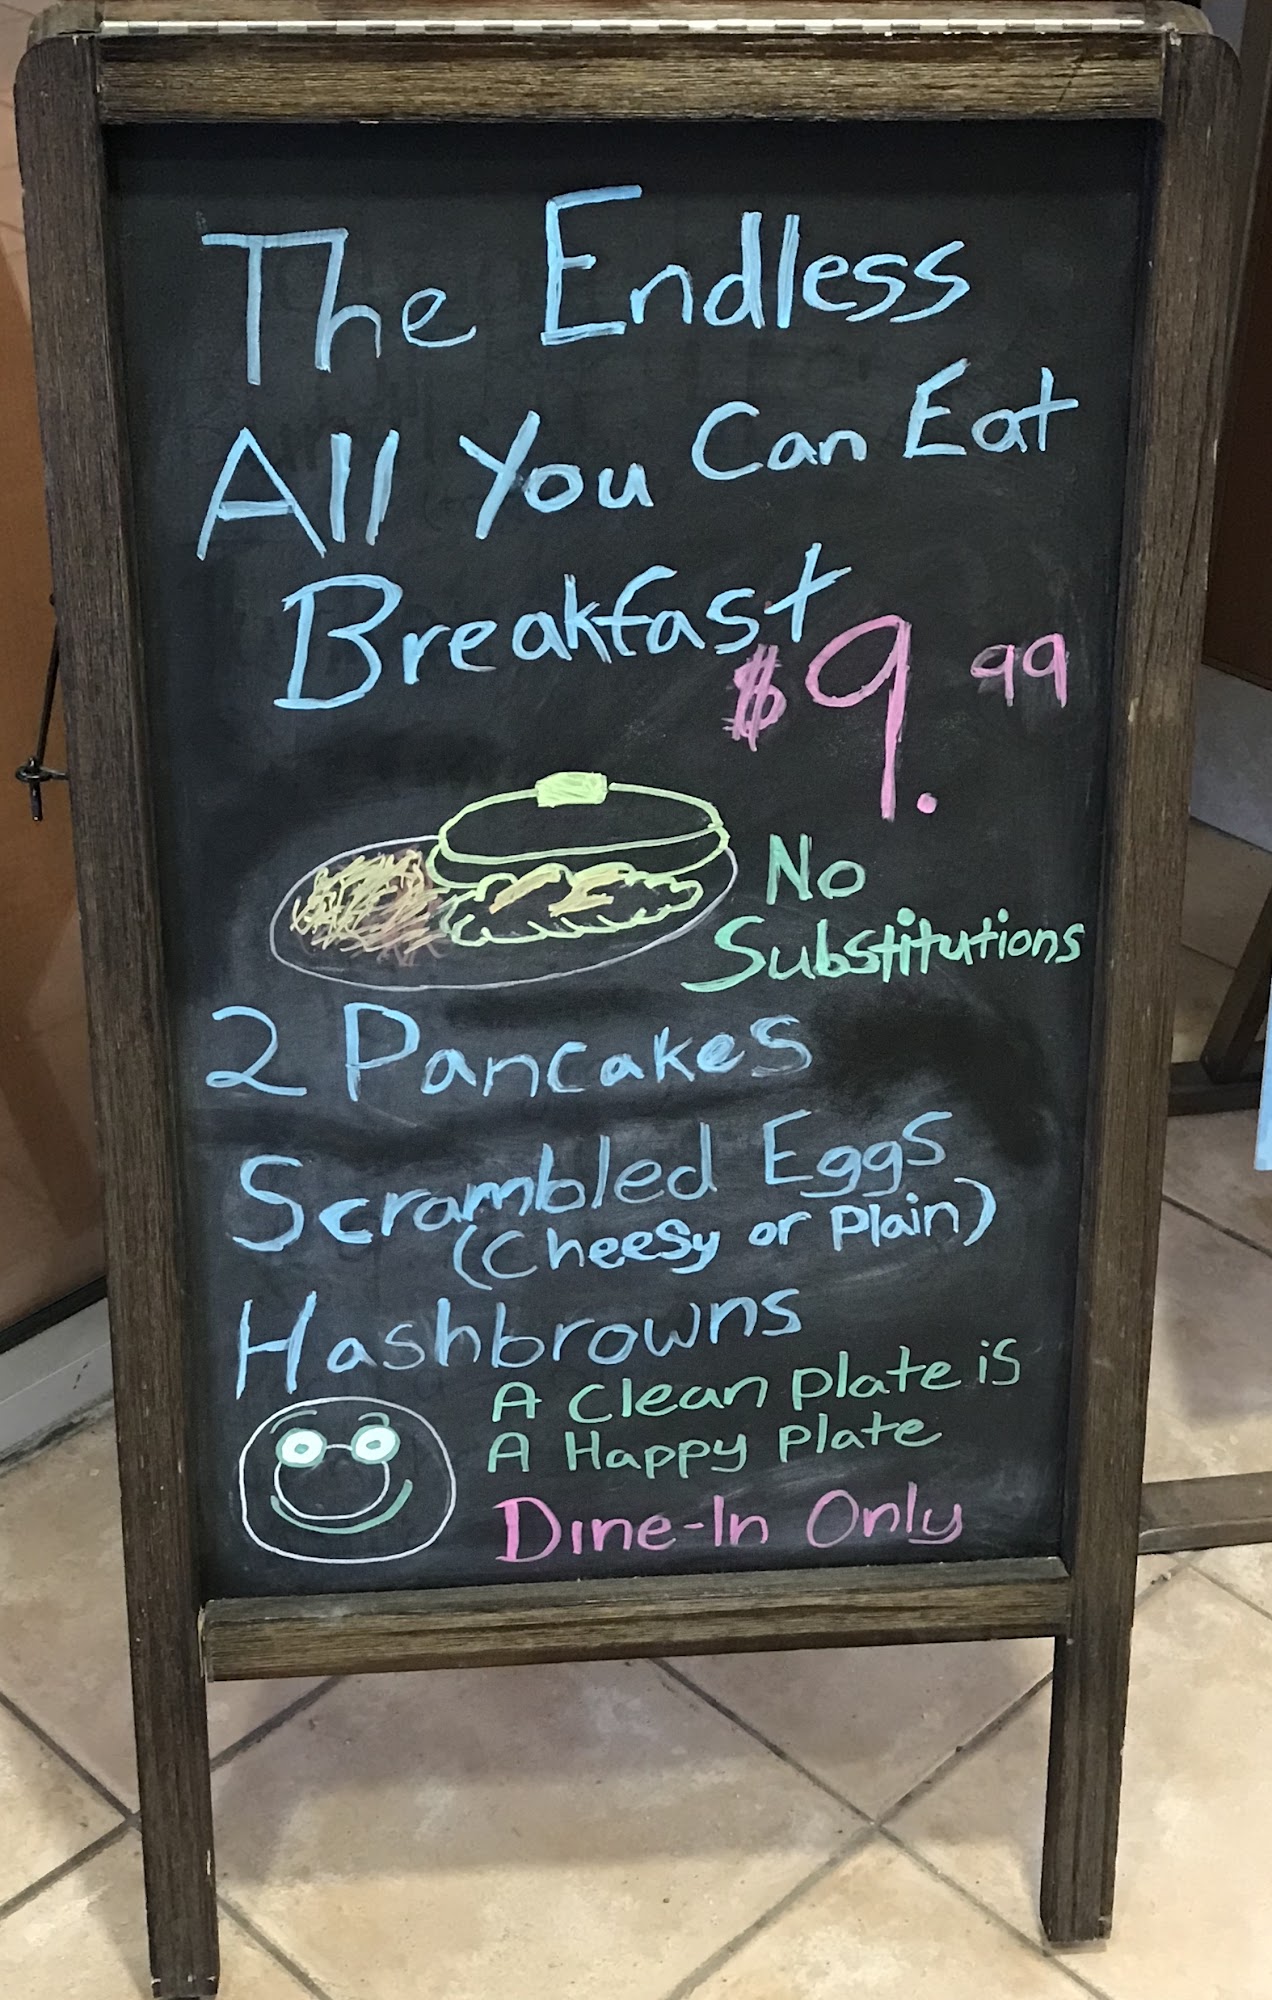 The Endless
All You Can Eat
Breakfast
$9.99
No
Substitutions
2 Pancakes
Scrambled Eggs
(Cheesy or Plain)
Hashbrowns
A Clean plate is
A Happy plate
Dine-In Only